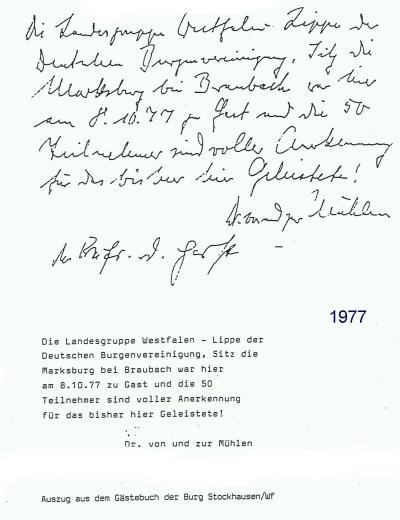 Die Landesgruppe Westfalen Lippe der
Deutschen Burgenvereinigung, Sitz die
Marksburg bei Braubach war hier
am 8.10.77 zu Gast und die 50
Teilnehmer sind voller Anerkennung
für das bisher hier Geleistete!
Dr. von und zur Mühlen
1977
Die Landesgruppe Westfalen - Lippe der
Deutschen Burgenvereinigung, Sitz die
Marksburg bei Braubach war hier
am 8.10.77 zu Gast und die 50
Teilnehmer sind voller Anerkennung
für das bisher hier Geleistete!
Dr. von und zur Mühlen
Auszug aus dem Gästebuch der Burg Stockhausen/Wf